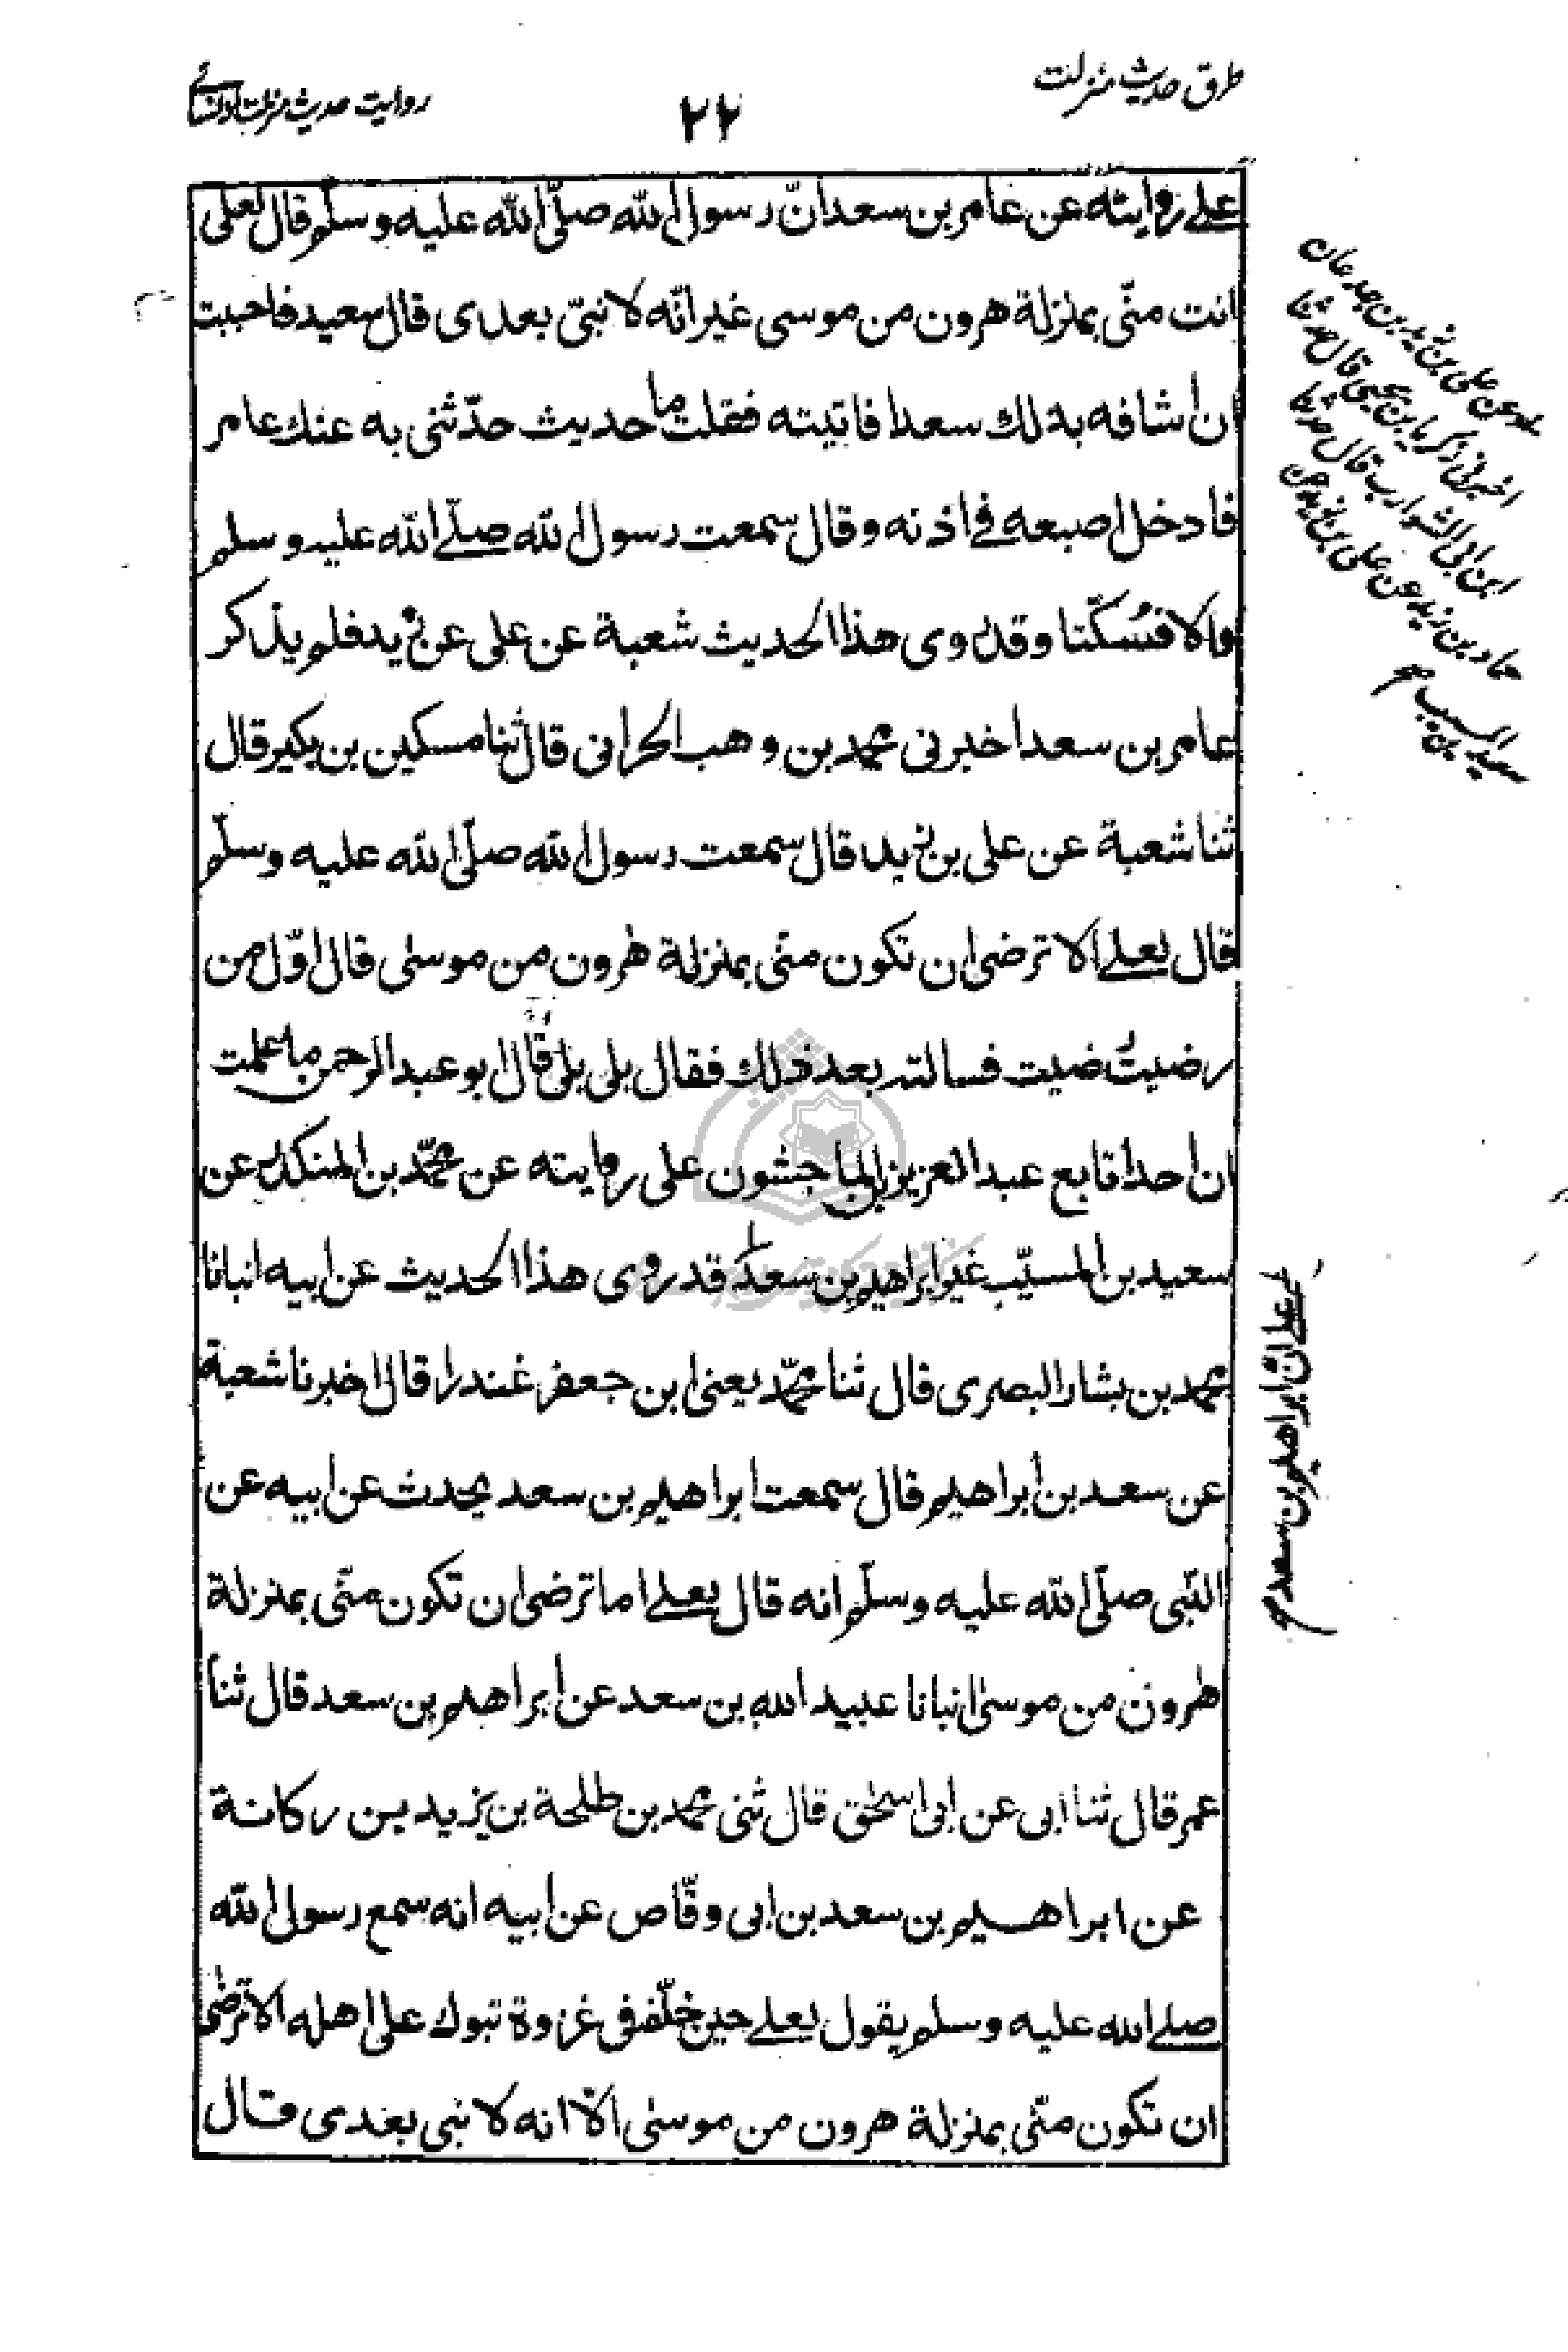 طرق حدیث منزلت
۲۲
روایت حدیث منزلت از نسائے
علے روایته عن عامر بن سعد انّ رسول الله صلّى الله علیه وسلّم قال لعلی
انت منّی بمنزلة هرون من موسى غیر انّه لا نبیّ بعدی قال سعید فاحببت
ان اشافه بذلك سعدا فاتیته فقلت ما حدیث حدّثنی به عنك عامر
فادخل اصبعه فے اذنه وقال سمعت رسول الله صلّے الله علیه وسلم
والا فسُكّتا وقد روی هذا الحدیث شعبة عن علی عن زید فلم یذكر
عامر بن سعد اخبرنی محمد بن وهب الحرانی قال ثنا مسكین بن بكیر قال
ثنا شعبة عن علی بن زید قال سمعت رسول الله صلّى الله علیه وسلّم
قال لعلے الا ترضى ان تكون منّی بمنزلة هٰرون من موسىٰ قال اوّل من
رضیتُ رضیت فسالته بعد ذلك فقال بلى بلى قال ابو عبد الرحمن ما علمت
ان احدا تابع عبد العزیز الماجشون على روایته عن محمّد بن المنكدر عن
سعید بن المسیّب غیر ابراهیم بن سعد قد روی هذا الحدیث عن ابیه انبانا
محمد بن بشار البصری قال ثنا محمّد یعنی ابن جعفر غندرا قال اخبرنا شعبة
عن سعد بن ابراهیم قال سمعت ابراهیم بن سعد یحدث عن ابیه عن
النّبی صلّى الله علیه وسلّم انه قال لعلے اما ترضى ان تكون منّی بمنزلة
هٰرون من موسىٰ انبانا عبید الله بن سعد عن ابراهیم بن سعد قال ثنا
عمر قال ثنا ابی عن ابی اسحٰق قال ثنی محمد بن طلحة بن یزید بن ركانة
عن ابراهیم بن سعد بن ابی وقّاص عن ابیه انه سمع رسول الله
صلے الله علیه وسلم یقول لعلے حین خلّفه فی غزوة تبوك على اهله الا ترضى
ان تكون منّی بمنزلة هرون من موسىٰ الّا انه لا نبی بعدی قال
عن علی بن زید بن جدعان
اخبرنی زكریا بن یحیی قال حدثنا
ابن ابی الشوارب قال حدثنا
حماد بن زید عن علی بن زید عن
سعید بن المسیب صح
علے انّ ابراهیم بن سعد صح